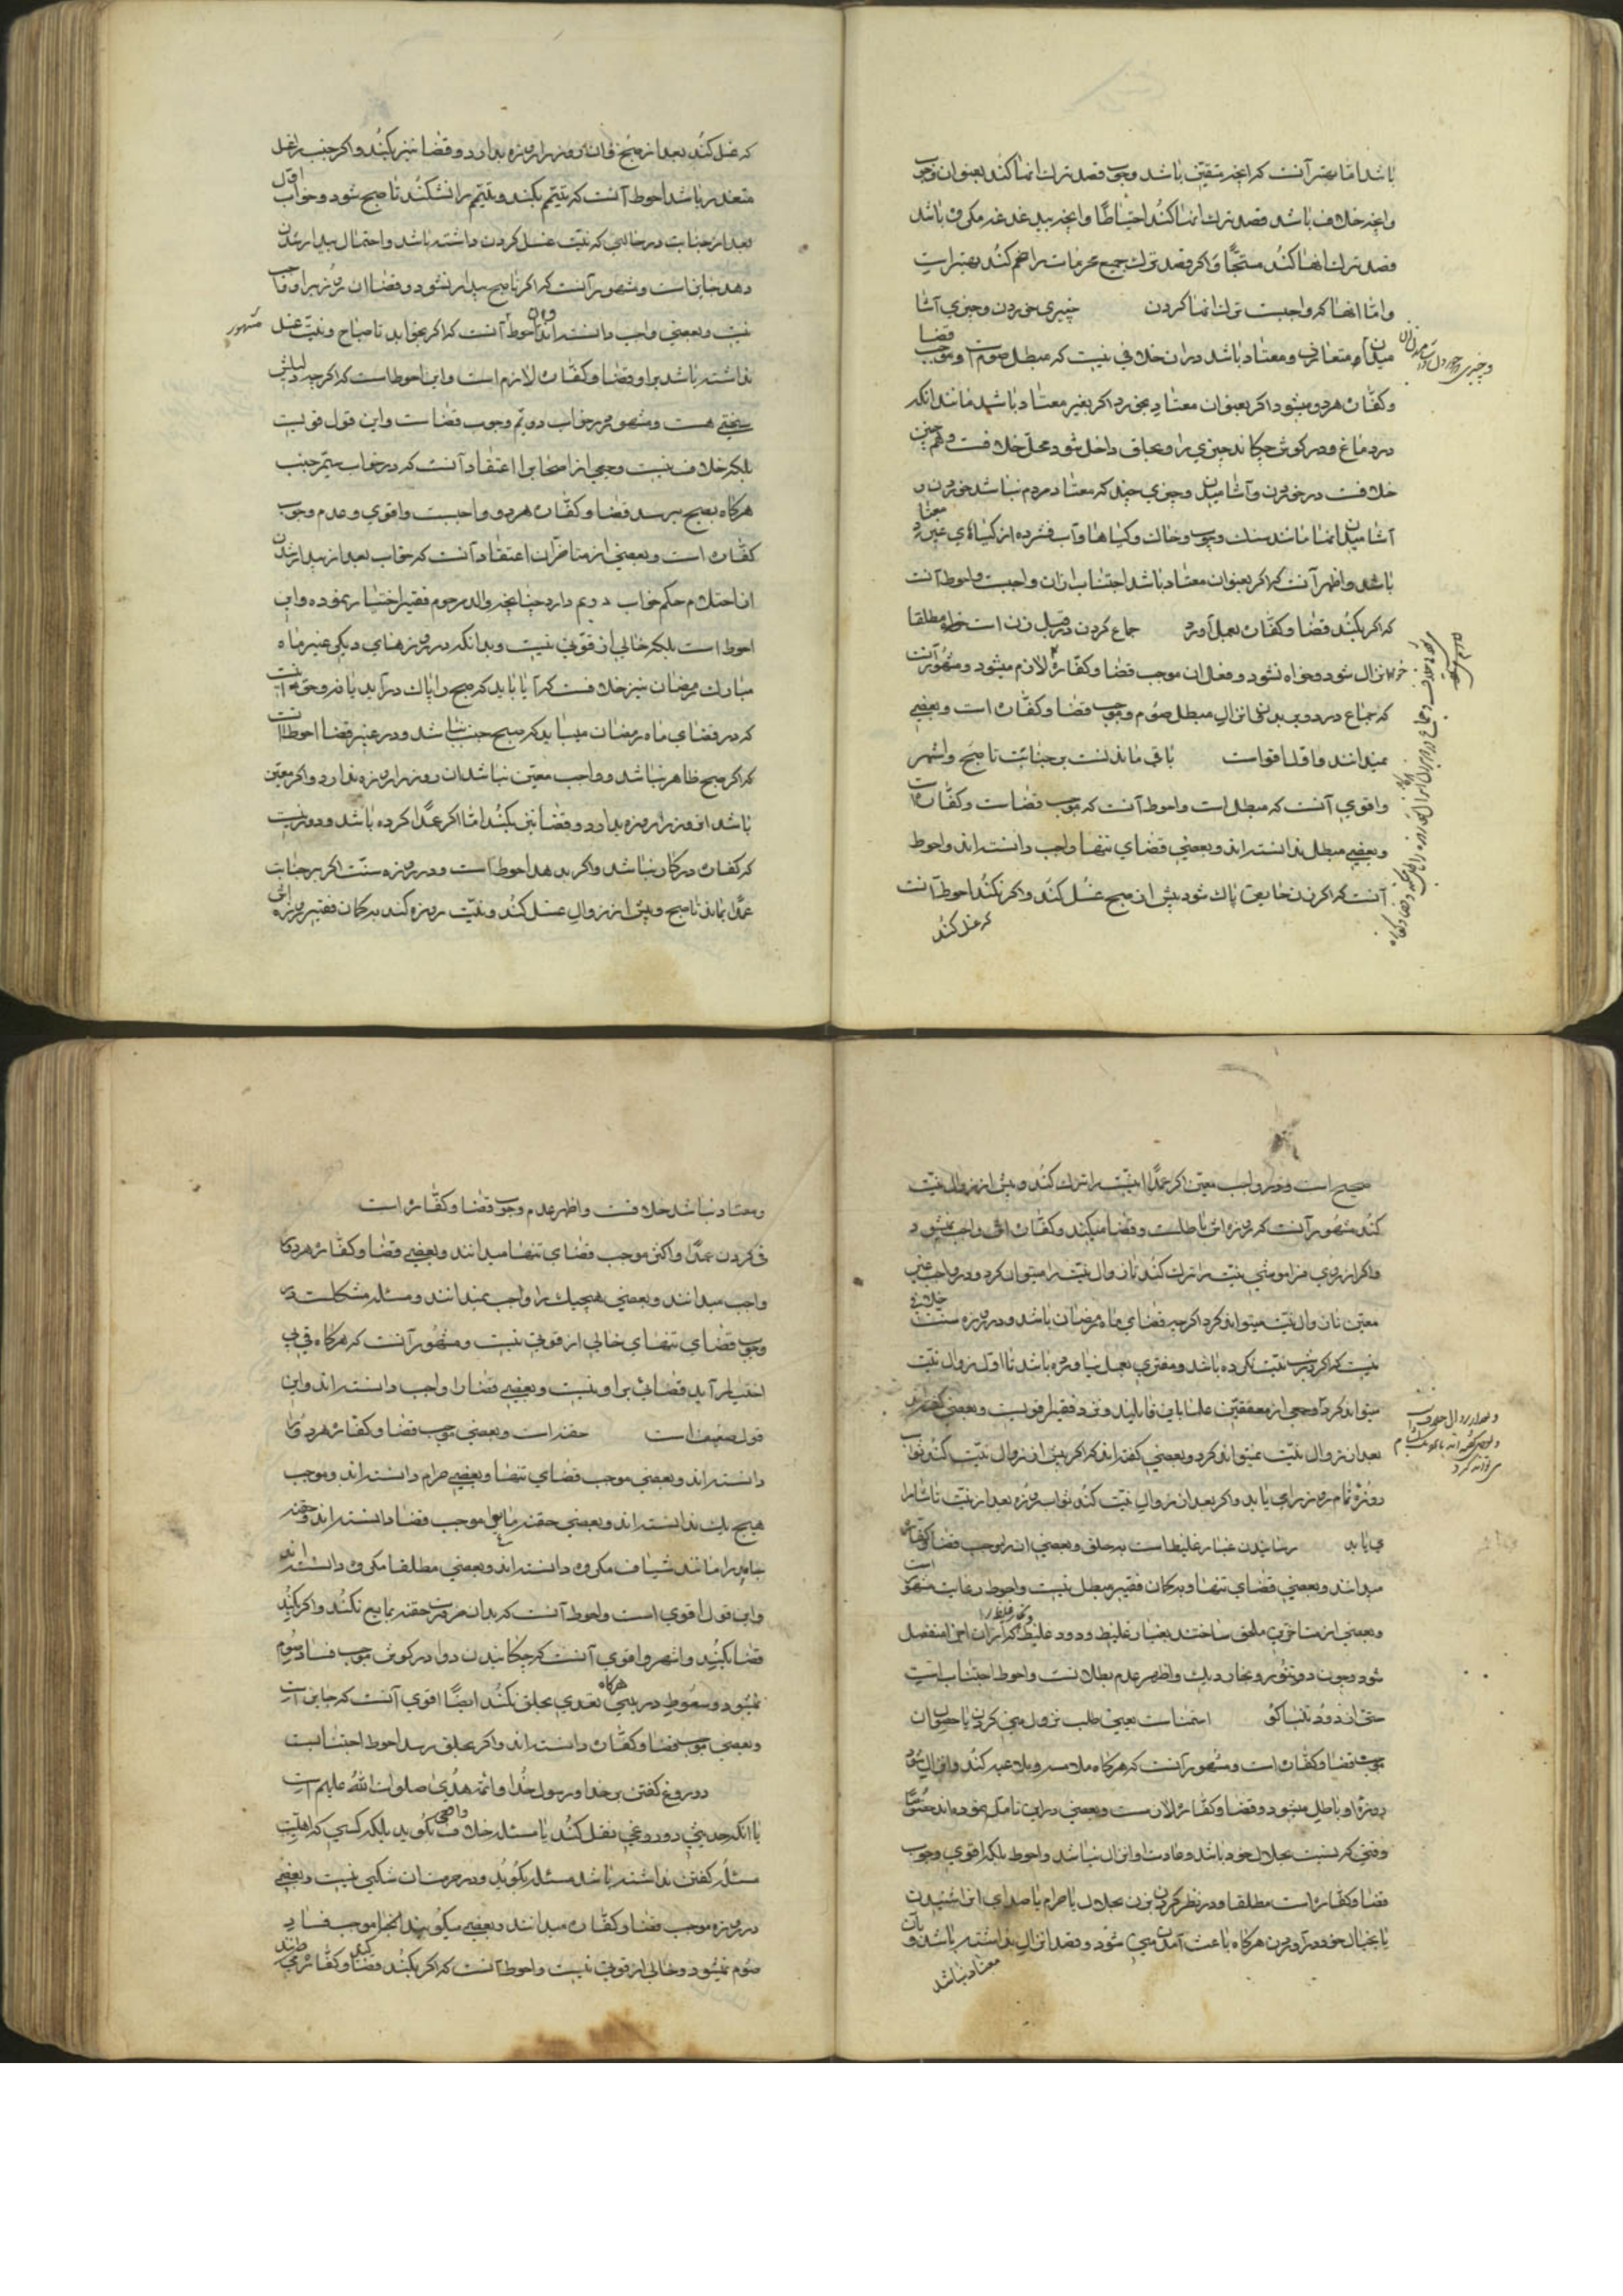 باشد اما بهتر آنست که آنچه متیقن باشد وجوب قصد ترک آنها کند بعنوان وجوب
و آنچه خلاف باشد قصد ترک آنها کند احتیاطا و آنچه بی دغدغه مکروه باشد
قصد ترک آنها کند مستحبا و اگر قصد ترک جمیع محرمات را ضم کند بهتر است
و اما آنها که واجبست ترک آنها کردن چیزی خوردن و چیزی آشا
میدن و متعارف و معتاد باشد در آن خلافی نیست که مبطل صوم است و موجب قضا
و کفاره هر دو میشود اگر بعنوان معتاد بخورد اگر بغیر معتاد باشد مانند آنکه
در دماغ و در گوش چکاند چیزی را و بحلق داخل شود محل خلافست و همچنین
خلافست در خوردن و آشامیدن و چیزی چند که معتاد مردم نباشد خوردن و
آشامیدن آنها مانند سنگ و چوب و خاک و گیاهها و آب فشرده از گیاهای غیر معتاد
باشد و اظهر آنست که اگر بعنوان معتاد باشد اجتناب از آن واجبست و احوط آنست
که اگر بکند قضا و کفاره بعمل آورد جماع کردن در قبل زن است خواه مطلقا
انزال شود و خواه نشود و فعل آن موجب قضا و کفاره لازم میشود و مشهور آنست
که جماع در دبر بدون انزال مبطل صوم و موجب قضا و کفاره است و بعضی
نمیدانند و اول اقواست باقی ماندنست بر جنابت تا صبح و اشهر
و اقوی آنست که مبطل است و احوط آنست که موجب قضاست و کفاره است
و بعضی مبطل ندانسته اند و بعضی قضای تنها واجب دانسته اند و احوط
آنست که اگر زن حایض پاک شود پیش از صبح غسل کند و اگر نکند احوط آنست
که غسل کند
که غسل کند بعد از صبح و آن روز را روزه بدارد و قضا نیز بکند و اگر جنب را غسل
متعذر باشد احوط آنست که تیمم بکند و تیمم را نشکند تا صبح شود و خواب اول
بعد از جنابت در حالتی که نیت غسل کردن داشته باشد و احتمال بیدار شدن
دهد جایز است و مشهور آنست که اگر تا صبح بیدار نشود و قضا آن روز بر او واجب
نیست و بعضی واجب دانسته اند و این احوط آنست که اگر بخوابد تا صباح و نیت غسل
مشهور
نداشته باشد بر او قضا و کفاره لازم است و این احوط است که اگر چه دلیلش
سختی هست و مشهور در خواب دویم وجوب قضاست و این قول قویست
بلکه خلاف نیست و جمعی از اصحاب را اعتقاد آنست که در خواب سیم جنب
هرگاه بصبح برسد قضا و کفاره هر دو واجبست و اقوی و عدم وجوب
کفاره است و بعضی از متاخران اعتقاد آنست که خواب بعد از بیدار شدن
از احتلام حکم خواب دویم دارد چنانچه والد مرحوم فقیر اختیار نموده و این
احوط است بلکه خالی از قوتی نیست و بدانکه در روزهای دیگر غیر ماه
مبارک رمضان نیز خلافست که آیا باید که صبح را پاک در آید یا نه و حق آنست
که در قضای ماه رمضان میباید که صبح جنب نباشد و در غیر قضا احوط آنست
که اگر صبح طاهر نباشد و واجب معین نباشد آن روز را روزه ندارد و اگر معین
باشد آن روز را روزه بدارد و قضا نیز بکند اما اگر عمدا کرده باشد و دور نیست
که کفاره در کار نباشد و اگر بدهد احوط است و در روزه سنت اگر بر جنابت
عمدا بماند تا صبح و پیش از زوال غسل کند و نیت روزه کند بگمان فقیر روزه اش
صحیح است و در واجب معین اگر عمدا نیت را ترک کند و پیش از زوال نیت
کند مشهور آنست که روزه اش باطلست و قضا میکند و کفاره اش واجب نمیشود
و اگر از روی فراموشی نیت را ترک کند تا زوال نیت را میتوان کرد و در واجب غیر
معین تا زوال نیت میتواند کرد اگر چه قضای ماه رمضان باشد و در روزه سنت خلافی
نیست که اگر در شب نیت نکرده باشد و مفطری بعمل نیاورده باشد تا اول زوال نیت
میتواند کرد و جمعی از محققین علما باین قایلند و نزد فقیر قویست و بعضی گفته اند
بعد از زوال نیت نمیتواند کرد و بعضی گفته اند که اگر پیش از زوال نیت کند ثواب
روزه تمام روز را می یابد و اگر بعد از زوال نیت کند ثواب روزه بعد از نیت تا شام را
می یابد رسانیدن غبار غلیظ است بحلق و بعضی آنرا موجب قضا و کفاره
میدانند و بعضی قضای تنها و بگمان فقیر مبطل نیست و احوط رعایت مشهور است
و بعضی از متاخرین ملحق ساختند بغبار غلیظ و دود غلیظ و بخار غلیظ را که از آن اجزا منفصل
شود و چون دود تنور و بخار دیگ و اظهر عدم بطلانست و احوط اجتناب است
حتی از دود تنباکو استمناست یعنی طلب نزول منی کردن با حصول آن
موجب قضا و کفاره است و مشهور آنست که هرگاه ملامسه و ملاعبه کند و انزال شود
روزه او باطل میشود و قضا و کفاره لازمست و بعضی در این تامل نموده اند خصوصا
وقتی که نسبت بحلال خود باشد و عادت او انزال نباشد و احوط بلکه اقوی وجوب
قضا و کفاره است مطلقا و در نظر کردن بزن بحلال یا حرام یا صدای آن شنیدن
یا بخیال خود در آوردن هرگاه باعث آمدن منی شود و قصد انزال نداشته باشد و
معتاد نباشد
و معتاد نباشد خلافست و اظهر عدم وجوب قضا و کفاره است
قی کردن عمدا و اکثر موجب قضای تنها میدانند و بعضی قضا و کفاره هر دو را
واجب میدانند و بعضی هیچیک را واجب نمیدانند و مسئله مشکلست و
وجوب قضای تنهای خالی از قوتی نیست و مشهور آنست که هرگاه قی بی
اختیار آید قضائی بر او نیست و بعضی قضا را واجب دانسته اند و این
قول ضعیف است حقنه است و بعضی موجب قضا و کفاره هر دو را
دانسته اند و بعضی موجب قضای تنها و بعضی حرام دانسته اند و موجب
هیچ یک ندانسته اند و بعضی حقنه مایع را موجب قضا دانسته اند و حقنه
جامد را مانند شیاف مکروه دانسته اند و بعضی مطلقا مکروه دانسته اند
و این قول اقوی است و احوط آنست که بدون ضرورت حقنه بمایع نکند و اگر بکند
قضا بکند و اشهر و اقوی آنست که چکانیدن دوا در گوش موجب فساد صوم
نمیشود و سعوط در بینی هرگاه تعدی بحلق نکند ایضا اقوی آنست که جایز است
و بعضی موجب قضا و کفاره دانسته اند و اگر بحلق رسد احوط اجتنابست
دروغ گفتن بر خدا و رسول خدا و ائمه هدی صلوات الله علیهم است
یا آنکه حدیثی دروغی نقل کند یا مسئله خلاف واقعی بگوید بلکه کسی که اهلیت
مسئله گفتن نداشته باشد مسئله بگوید و در حرمت آن شکی نیست و بعضی
در روزه موجب قضا و کفاره میدانند و بعضی میگویند آنها موجب فساد
صوم نمیشود و خالی از قوتی نیست و احوط آنست که اگر بکند قضا و کفاره